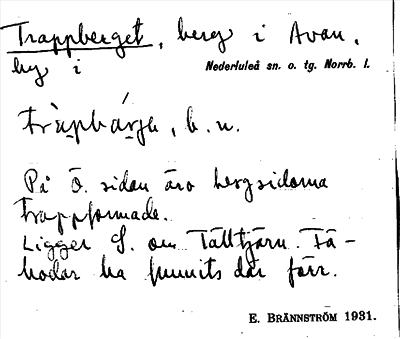 Trappberget, berg i Avan,
by i Nederluleå sn. o. tg. Norrb. l.
tràpbárje, b. n.
På Ö. sidan äro bergsidorna
trappformade.
Ligger S. om Tälltjärn. Fä-
bodar ha funnits där förr.
E. BRÄNNSTRÖM 1931.